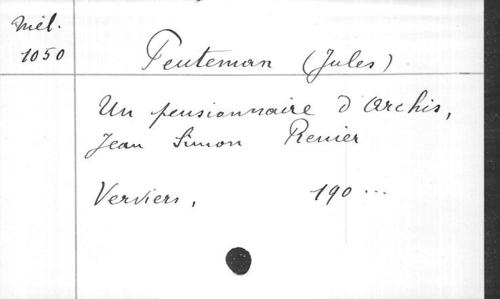 Mél.
1050
Peuteman (Jules)
Un pensionnaire d'Archis,
Jean Simon Renier
Verviers, 190...